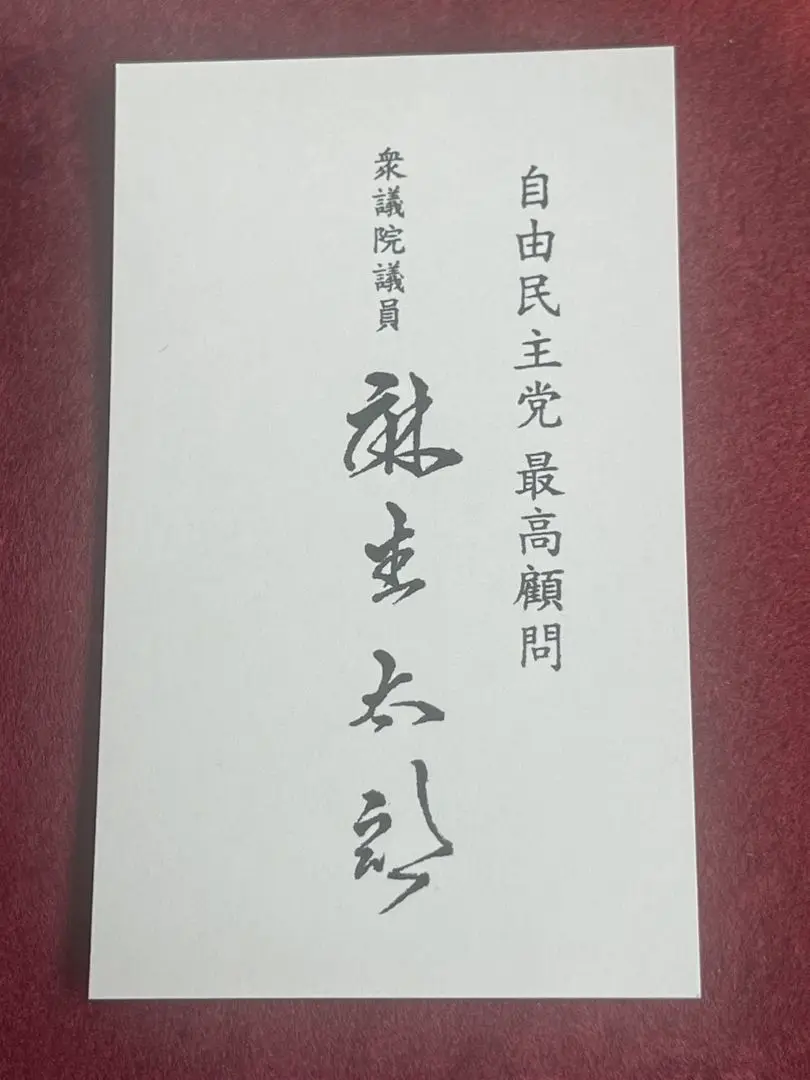 自由民主党 最高顧問
衆議院議員
麻生太郎